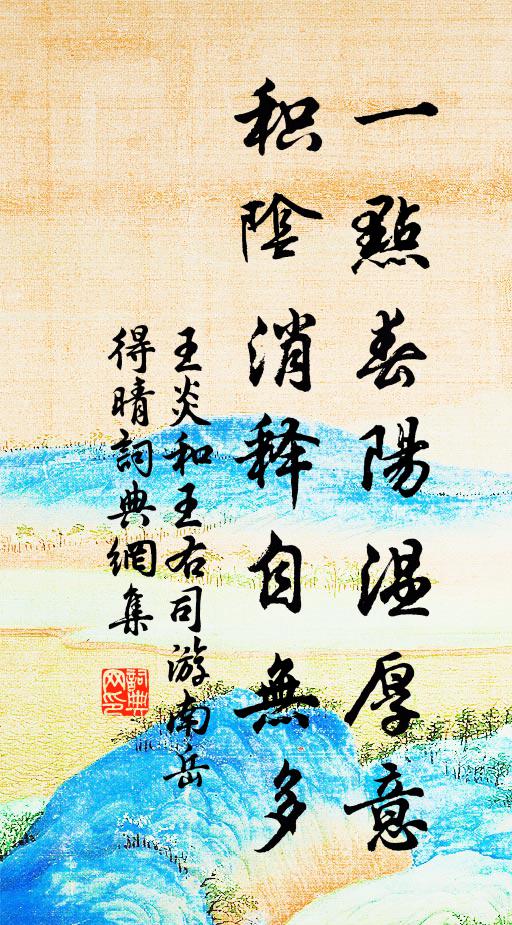 一點春陽温厚意
积陰消释自無多
王炎和王右司游南岳
得晴詞典網集
詞典
网印